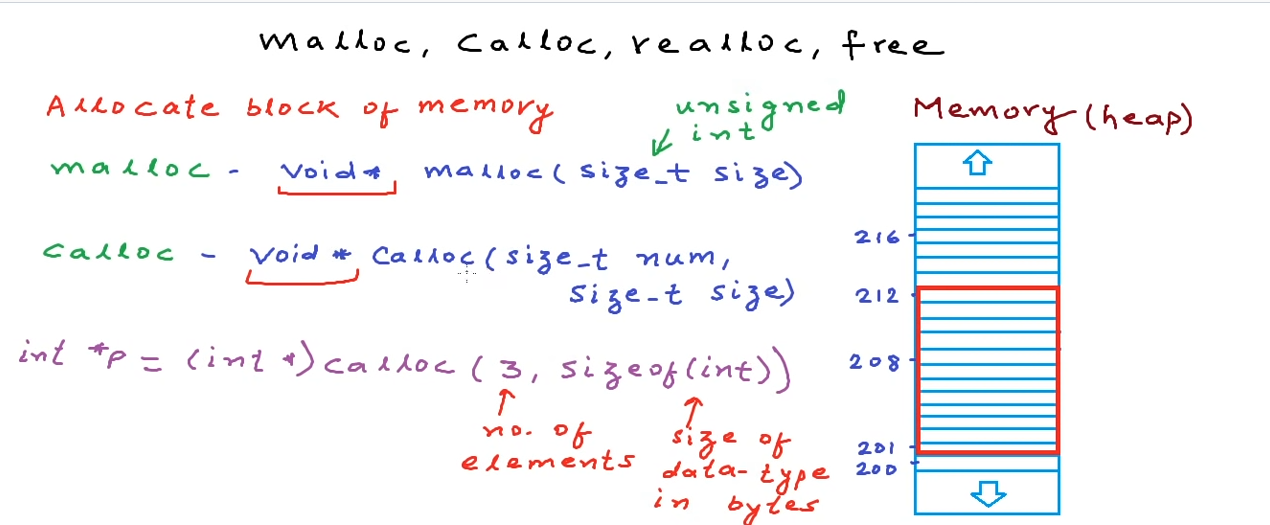 malloc, calloc, realloc, free
Allocate block of memory
unsigned
int
Memory (heap)
malloc - void* malloc(size_t size)
calloc - void* calloc(size_t num,
size_t size)
int *p = (int *)calloc(3, sizeof(int))
no. of
elements
size of
data-type
in bytes
216
212
208
201
200